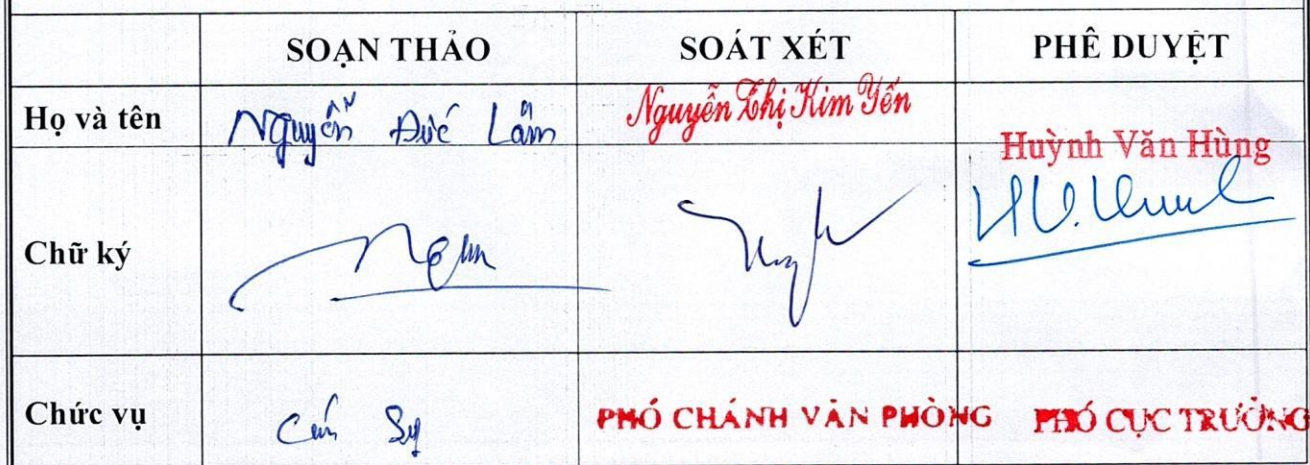 SOẠN THẢO SOÁT XÉT PHÊ DUYỆT
Họ và tên Nguyễn Đức Lâm Nguyễn Thị Kim Yến Huỳnh Văn Hùng
Chữ ký
Chức vụ PHÓ CHÁNH VĂN PHÒNG PHÓ CỤC TRƯỞNG